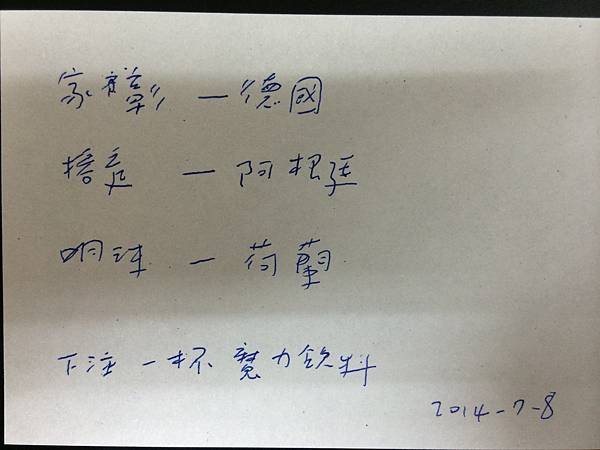 家彰 — 德國
— 阿根廷
明珠 — 荷蘭
下注 一杯 魔力飲料
2014-7-8